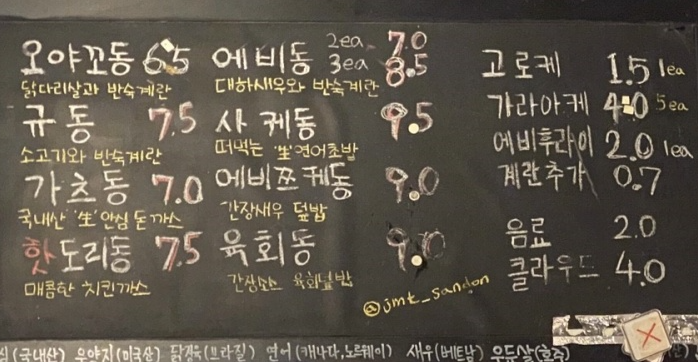 오야꼬동 6.5
닭다리살과 반숙계란
규동 7.5
소고기와 반숙계란
가츠동 7.0
국내산 '生' 안심 돈까스
핫도리동 7.5
매콤한 치킨까스
에비동 2ea 7.0
3ea 8.5
대하새우와 반숙계란
사케동 9.5
떠먹는 '生' 연어초밥
에비쯔케동 9.0
간장새우 덮밥
육회동 9.0
간장소스 육회덮밥
@jmt_sandon
고로케 1.5 1ea
가라아케 4.0 5ea
에비후라이 2.0 1ea
계란추가 0.7
음료 2.0
클라우드 4.0
(국내산) 우약지(미국산) 닭정육(브라질) 연어(캐나다,노르웨이) 새우(베트남) 우둔살(호주